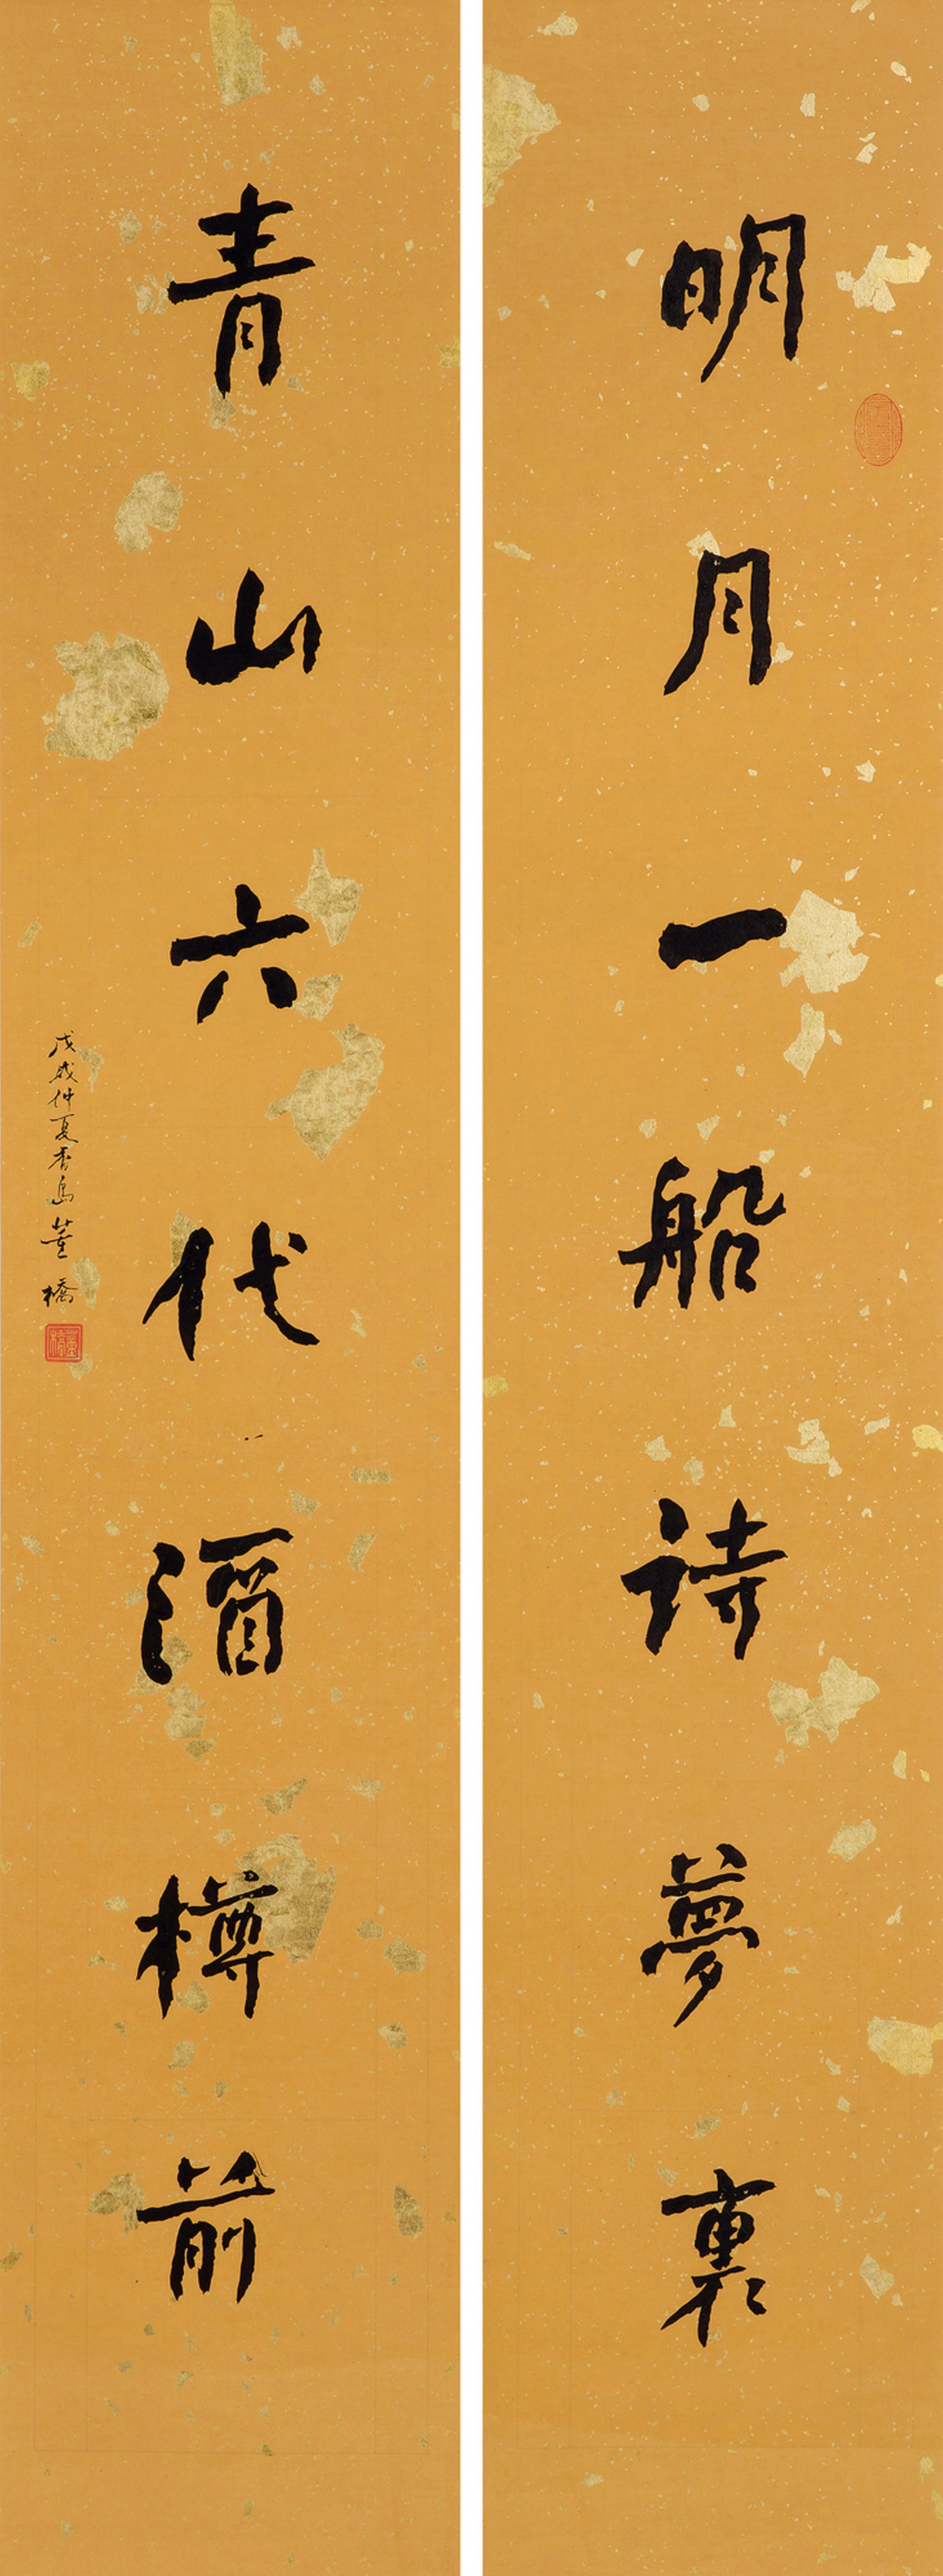 明月一船詩夢裏
青山六代酒樽前
戊戌仲夏香島董橋
董橋